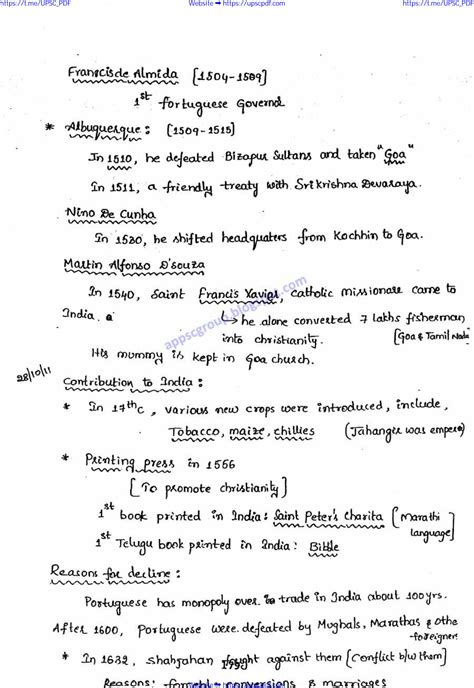 https://t.me/UPSC_PDF Website ➡ https://upscpdf.com https://t.me/UPSC_PDF
Francis de Almida [1504-1509]
1st Portuguese Governor
* Albuquesque: [1509-1515]
In 1510, he defeated Bizapur Sultans and taken "Goa"
In 1511, a friendly treaty with Srikrishna Devaraya.
Nino De Cunha
In 1530, he shifted headquaters from Kochhin to Goa.
Martin Alfonso D'souza
In 1540, Saint Francis Xavier, catholic missionare came to
India.
↳ he alone converted 7 lakhs fisherman
into christianity. [Goa & Tamil Nadu
His mummy is kept in Goa church.
appscgroup.blogspot.com
28/10/11
Contribution to India:
* In 17thc, various new crops were introduced, include,
Tobacco, maize, chillies (Jahangir was emperor)
* Printing press in 1556
[To promote christianity]
1st book printed in India: Saint Peter's Charita [Marathi
language]
1st Telugu book printed in India: Bible
Reasons for decline:
Portuguese has monopoly over trade in India about 100yrs.
After 1600, Portuguese were defeated by Mughals, Marathas & othe
foreigners
* In 1632, Shahjahan fought against them [Conflict b/w them]
Reasons: conversions & marriages